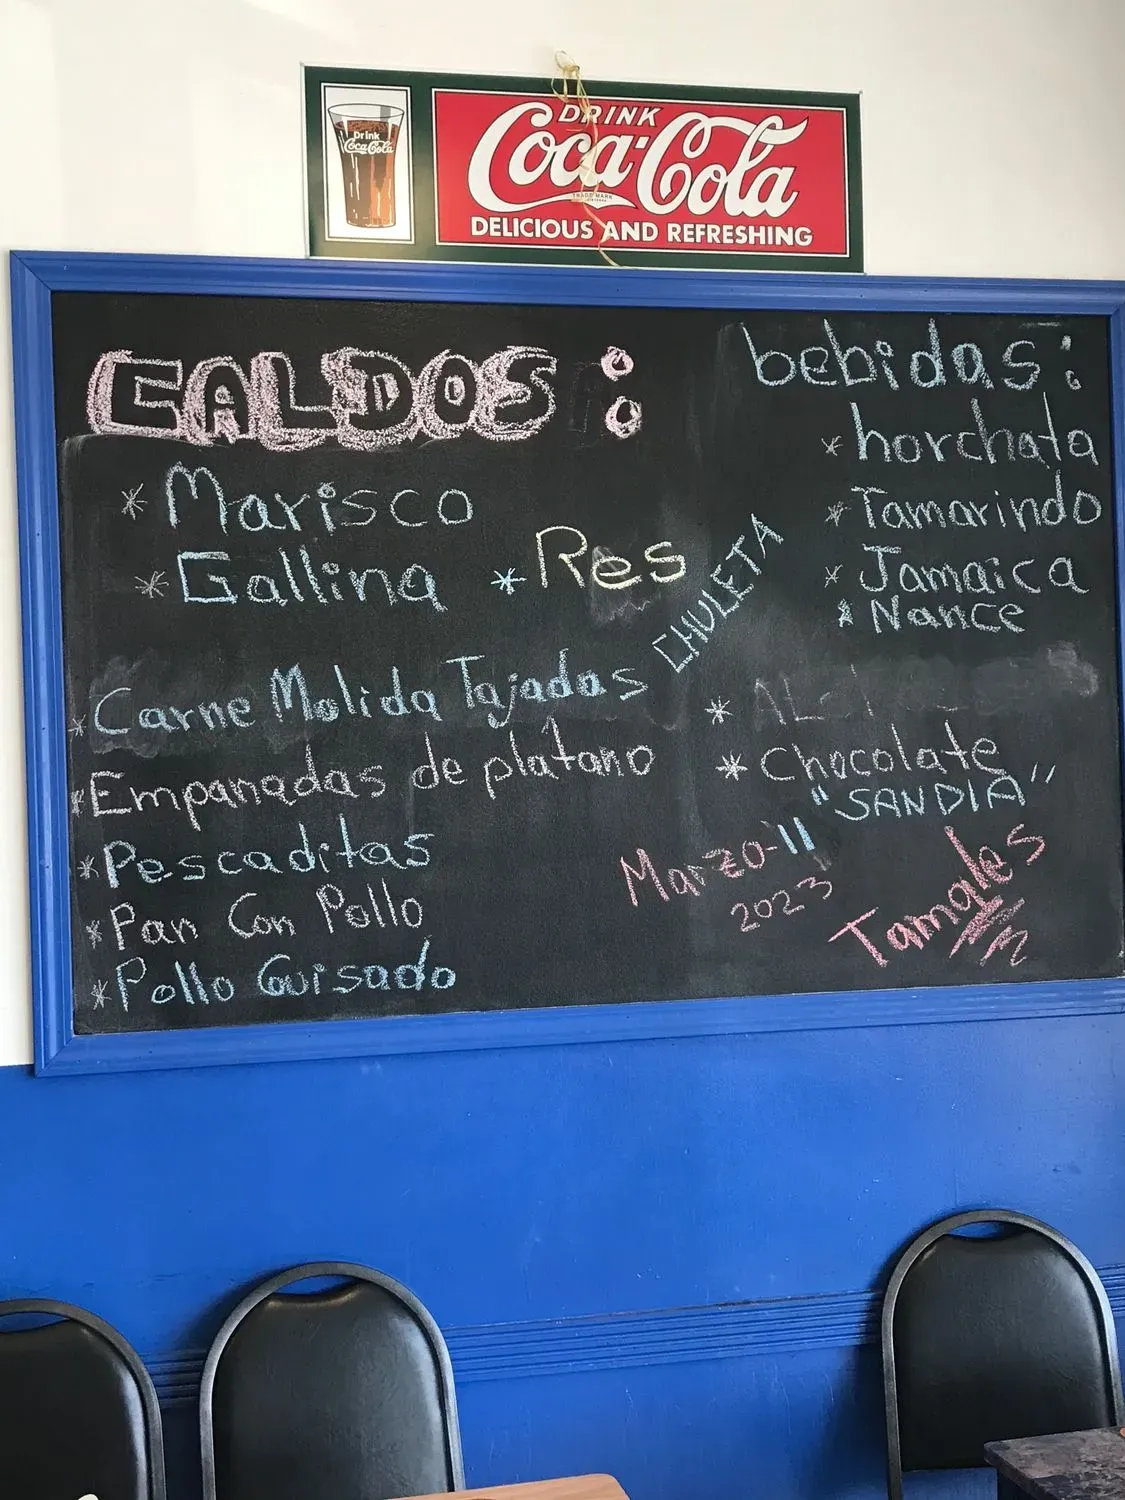 DRINK
Coca-Cola
TRADE MARK
DELICIOUS AND REFRESHING
Drink
Coca-Cola
CALDOS:
* Marisco
* Gallina * Res
CHULETA
* Carne Molida Tajadas
* Empanadas de plátano
* Pescaditas
* Pan Con Pollo
* Pollo Guisado
bebidas:
* horchata
* Tamarindo
* Jamaica
* Nance
*
* Chocolate
"SANDIA"
Marzo-11
2023
Tamales